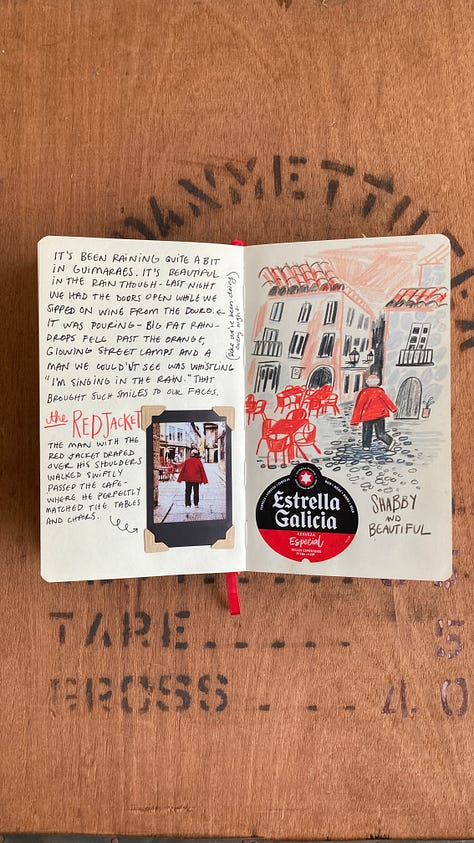 IT'S BEEN RAINING QUITE A BIT
IN GUIMARAES. IT'S BEAUTIFUL
IN THE RAIN THOUGH - LAST NIGHT
WE HAD THE DOORS OPEN WHILE WE
SIPPED ON WINE FROM THE DOURO.
(like we've been doing
every night)
IT WAS POURING - BIG FAT RAIN-
DROPS FELL PAST THE ORANGE,
GLOWING STREET LAMPS AND A
MAN WE COULD'VT SEE WAS WHISTLING
"I'M SINGING IN THE RAIN." THAT
BROUGHT SUCH SMILES TO OUR FACES.
the RED JACKET
THE MAN WITH THE
RED JACKET DRAPED
OVER HIS SHOULDERS
WALKED SWIFTLY
PASSED THE CAFE-
WHERE HE PERFECTLY
MATCHED THE TABLES
AND CHAIRS.
Estrella
Galicia
CERVEZA
Especial
SHABBY
AND
BEAUTIFUL
TARE
GROSS